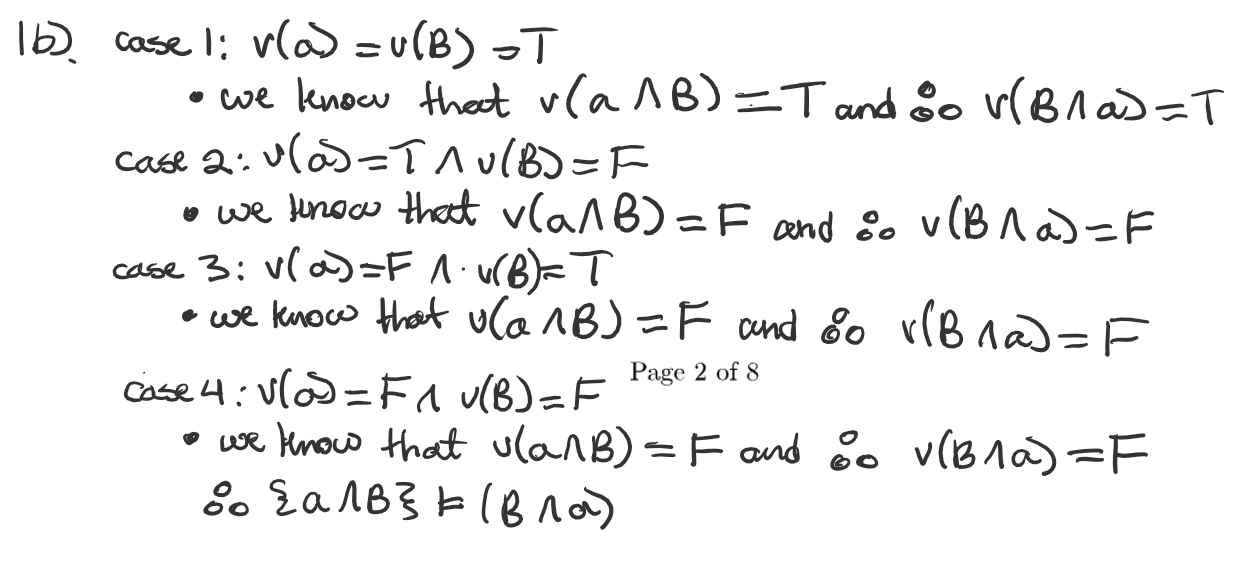 1b). case 1: v(a) = v(B) = T
• we know that v(a ∧ B) = T and ∴ v(B ∧ a) = T
case 2: v(a) = T ∧ v(B) = F
• we know that v(a ∧ B) = F and ∴ v(B ∧ a) = F
case 3: v(a) = F ∧ v(B) = T
• we know that v(a ∧ B) = F and ∴ v(B ∧ a) = F
Page 2 of 8
case 4: v(a) = F ∧ v(B) = F
• we know that v(a ∧ B) = F and ∴ v(B ∧ a) = F
∴ {a ∧ B} ⊨ (B ∧ a)